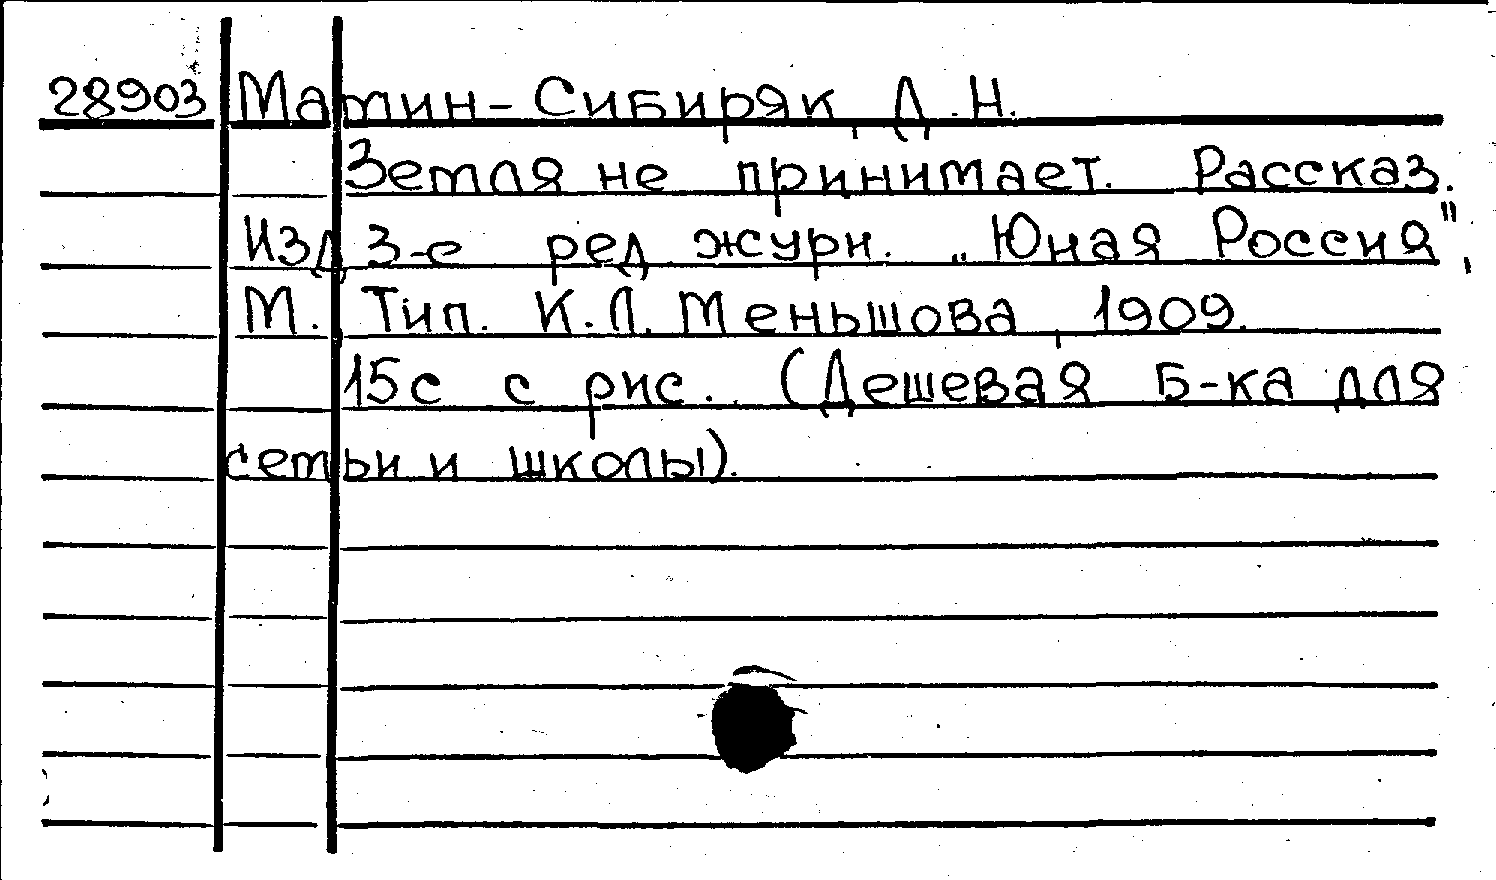 28903 Мамин-Сибиряк, Д.Н.
Земля не принимает. Рассказ.
Изд. 3-е ред. журн. „Юная Россия",
М. Тип. К.Л. Меньшова, 1909.
15с с рис.. (Дешевая Б-ка для
семьи и школы).